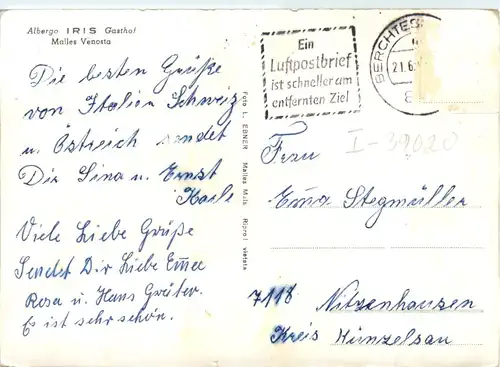 Albergo IRIS Gasthof
Malles Venosta
Die besten Grüße
von Italien Schweiz
u. Östreich sendet
Dir Lina u. Ernst
Karle
Viele liebe Grüße
Sendet Dir liebe Emma
Rosa u. Hans Gräter.
Es ist sehr schön.
Foto L. EBNER Malles Mals Ripro-! vietata
Ein
Luftpostbrief
ist schneller am
entfernten Ziel
BERCHTES
21.6.
8
I-39020
Frau
Emma Stegmüller
7118 Nitzenhausen
Kreis Künzelsau